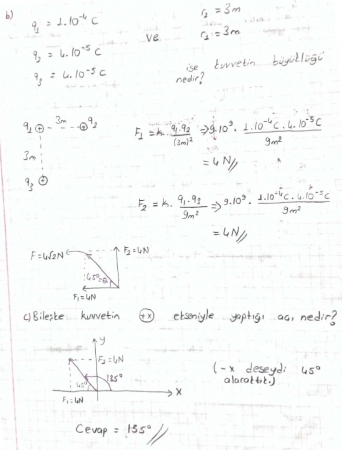 b) q₁ = 1.10⁻⁴ C r₂ = 3m
q₂ = 4.10⁻⁵ C ve r₁ = 3m
q₃ = 4.10⁻⁵ C ise kuvvetin büyüklüğü
nedir?
q₁ ⊕ 3m ⊕ q₂
3m
q₃ ⊕
F₁ = k. q₁.q₂/(3m)² => 9.10⁹. 1.10⁻⁴C.4.10⁻⁵C/9m²
= 4N//
F₂ = k. q₁.q₃/9m² => 9.10⁹. 1.10⁻⁴C.4.10⁻⁵C/9m²
= 4N//
F=4√2N F₂=4N
45°=α
F₁=4N
c) Bileşke kuvvetin (+x) ekseniyle yaptığı açı nedir?
y
F₂=4N
135°
45°
x
F₁=4N
(-x deseydi 45°
alacaktık.)
Cevap = 135°//